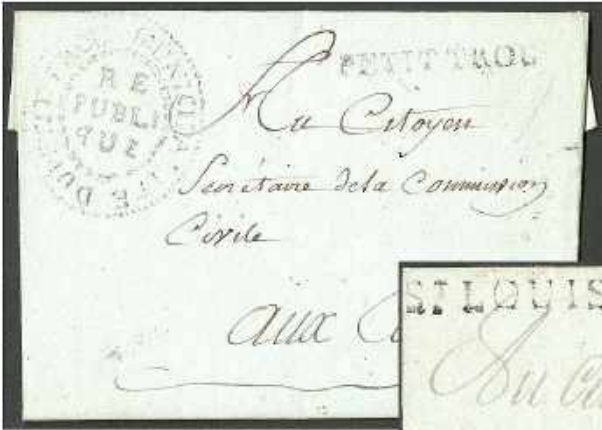 RE
PUBLI
QUE
PETIT TROU
Au Citoyen
Secrétaire de la Commission
Civile
aux
ST LOUIS
Au